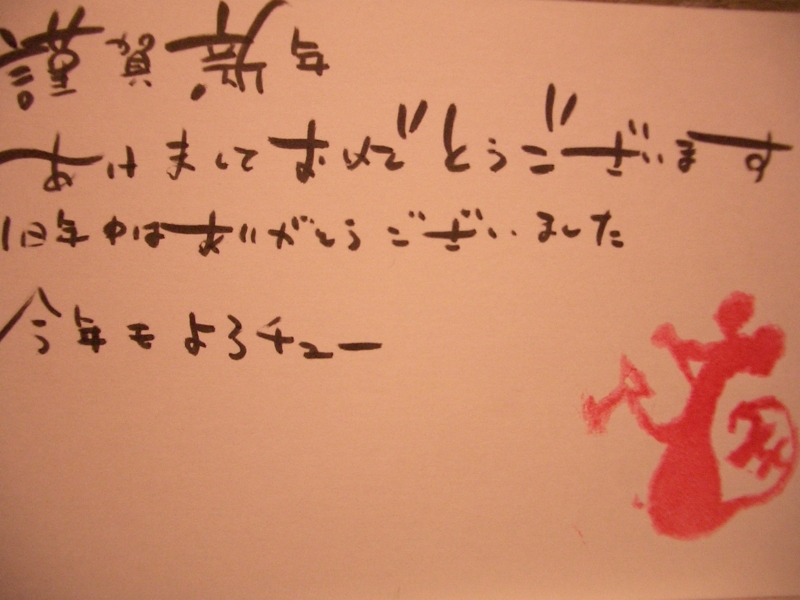 謹賀新年
あけましておめでとうございます
旧年中はありがとうございました
今年もよろチュー